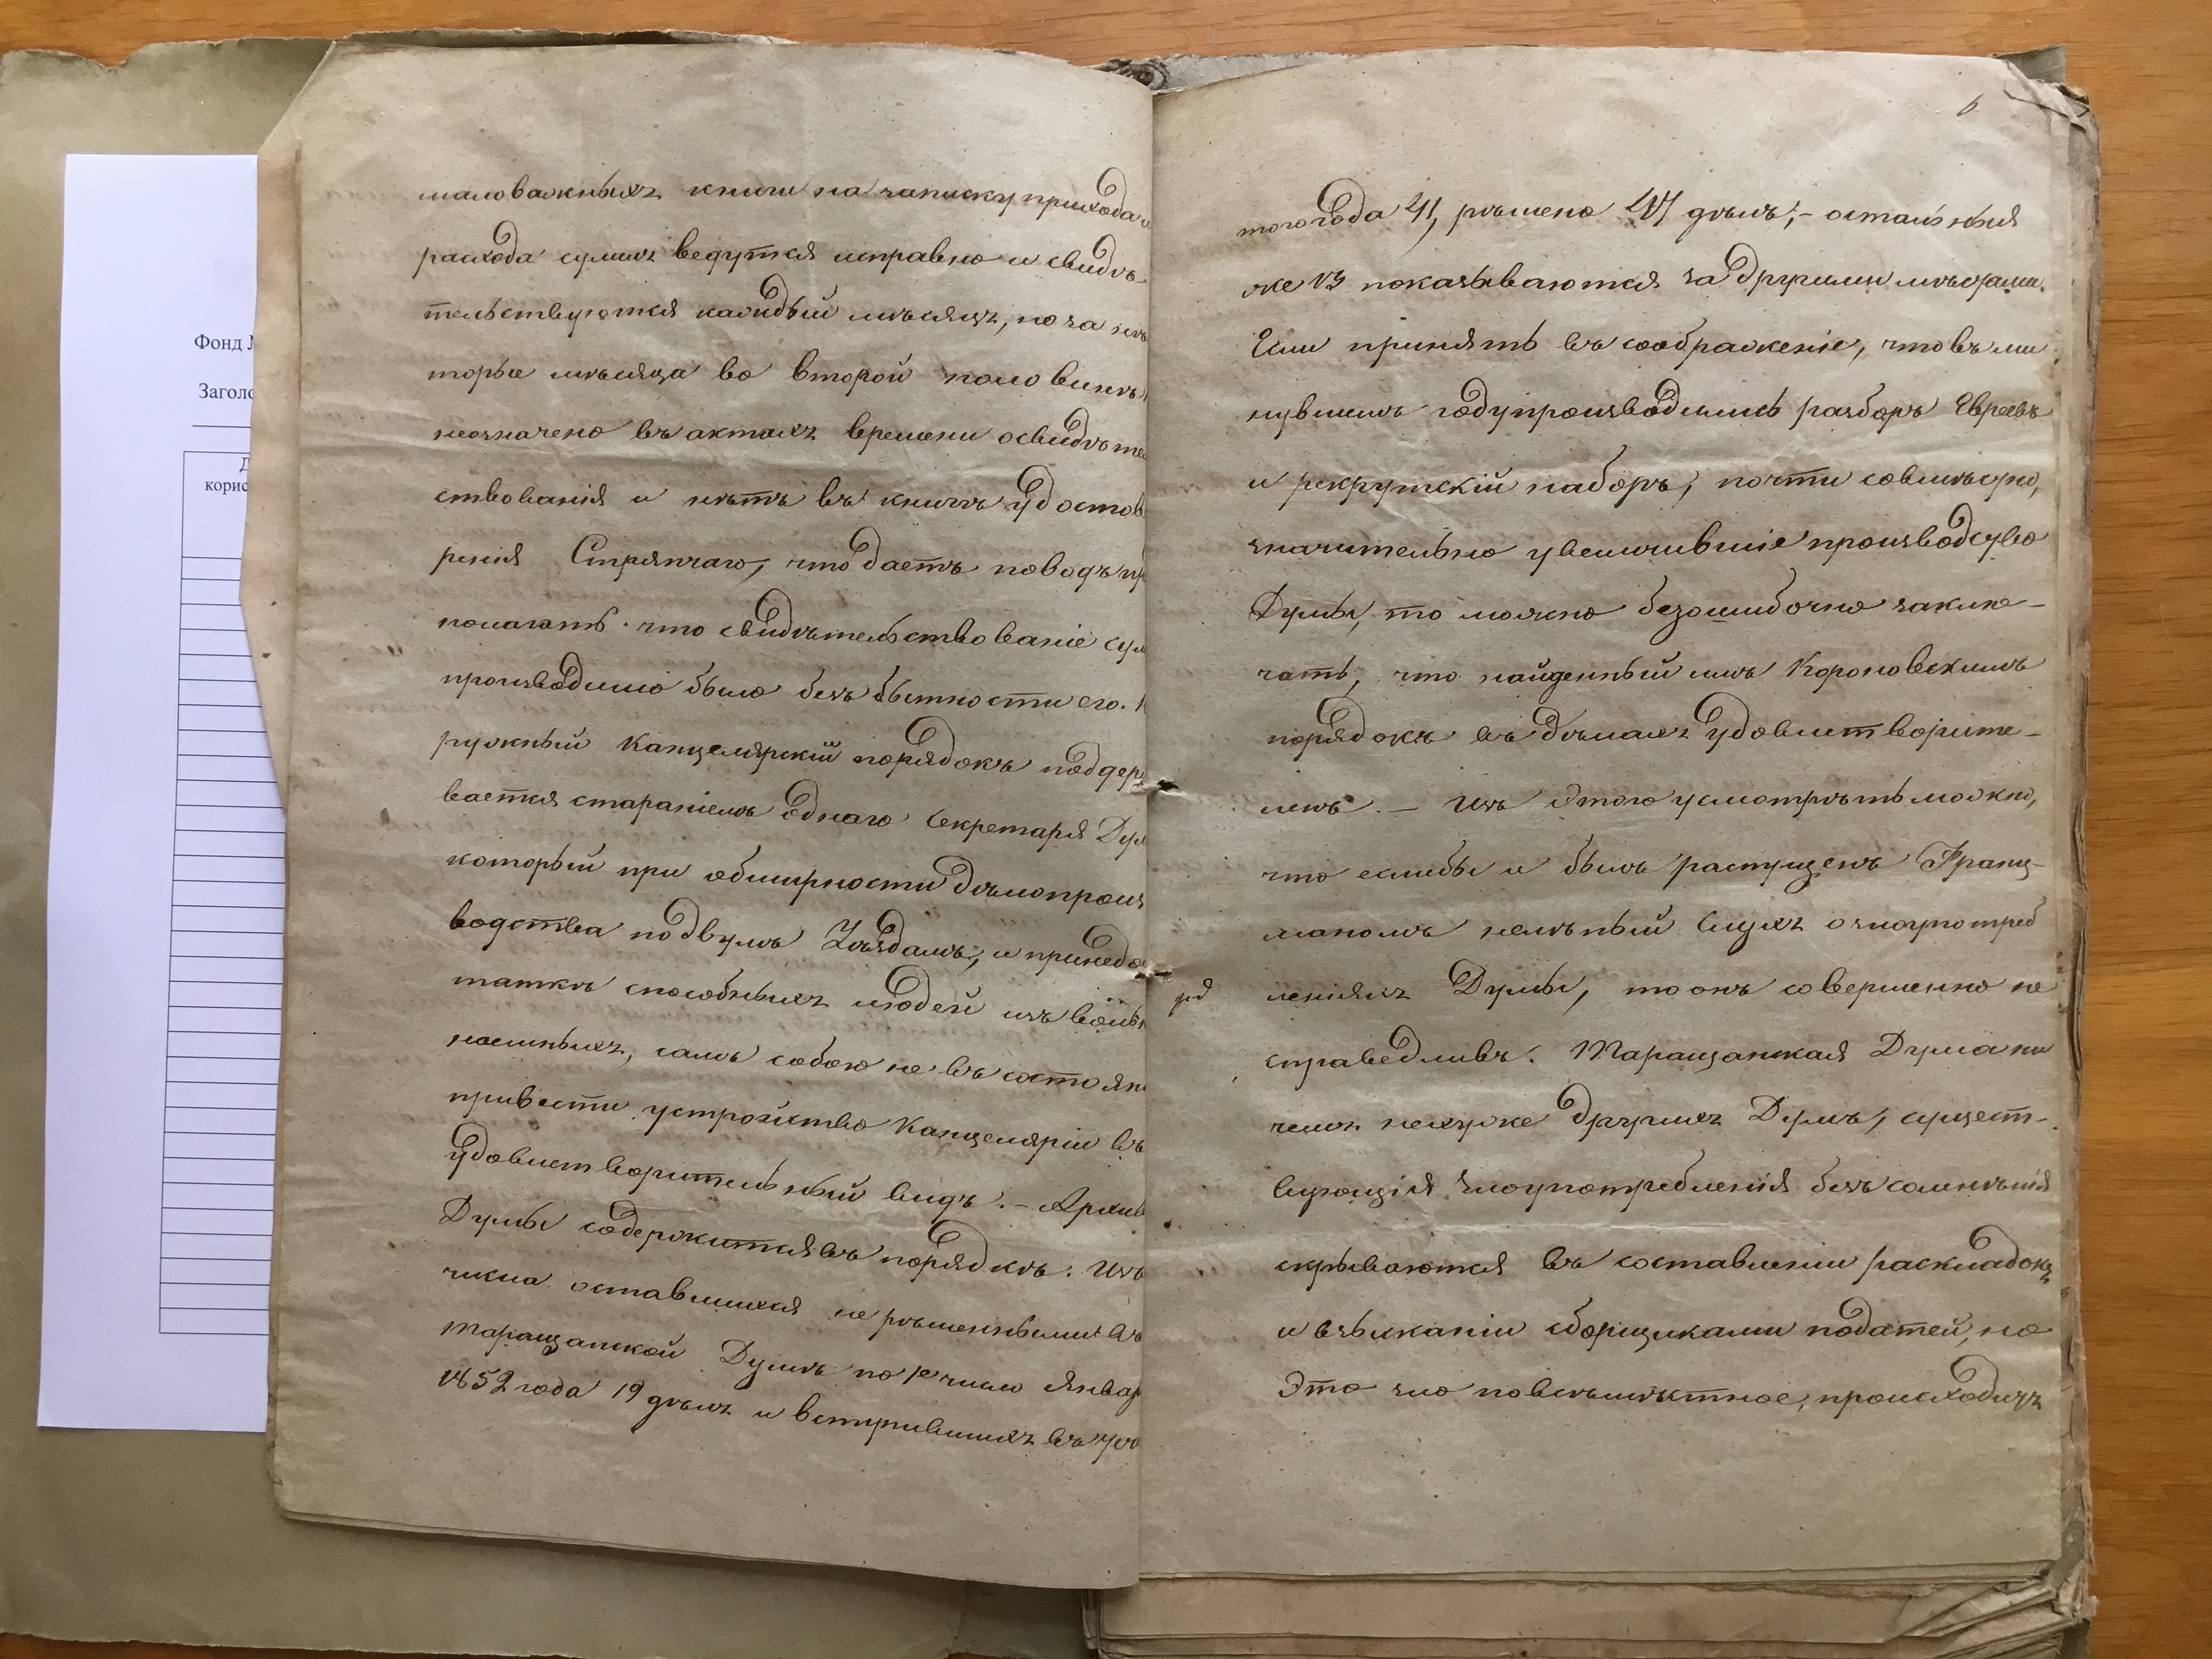 Фонд
Заголо
Д
корис
маловажныхъ книги на записку прихода и
расхода суммъ ведутся исправно и свидѣ-
тельствуются каждый мѣсяцъ, но за нѣ
торые мѣсяца во второй половинѣ
неозначено въ актахъ времени освидѣтель
ствованія и нѣтъ въ книгѣ удостов
ренія Стряпчаго, что даетъ поводъ пр
полагать что свидѣтельствованіе сум
производимо было безъ бытности его. Н
ружный Канцелярскій порядокъ поддер
вается стараніемъ однаго Секретаря Дум
который при обширности дѣлопроиз
водства по двумъ Уѣздамъ, и при недос
таткѣ способныхъ людей изъ вольн
наемныхъ, самъ собою не въ состояни
привести устройство Канцеляріи въ
удовлетворительный видъ. – Архив
Думы содержится въ порядкѣ. Изъ
числа оставшихся не рѣшенными въ
Таращанской Думѣ по 1е число Январ
1852 года 19 дѣлъ и вступившихъ въ
6
того года 41, рѣшено 47 дѣлъ; – остальныя
же 13 показываются за другими мѣстами.
Если принять въ соображеніе, что въ ми
нувшемъ году производились разборъ Евреевъ
и рекрутскій наборъ, почти совмѣстно,
значительно увеличившіе производство
Думы, то можно безошибочно заклю-
чать, что найденный имъ Короновскимъ
порядокъ въ дѣлахъ удовлетворите-
ленъ. – Изъ этого усмотрѣть можно,
что еслибы и былъ распущенъ Франц-
маномъ нелѣпый слухъ о злоупотреб
леніяхъ Думы, то онъ совершенно не
справедливъ. Таращанская Дума ни
чемъ нехуже другихъ Думъ, сущест-
вующія злоупотребленія безъ сомнѣнія
скрываются въ составленіи раскладокъ
и взысканіи сборщиками податей, но
Это зло повсемѣстное, происходитъ